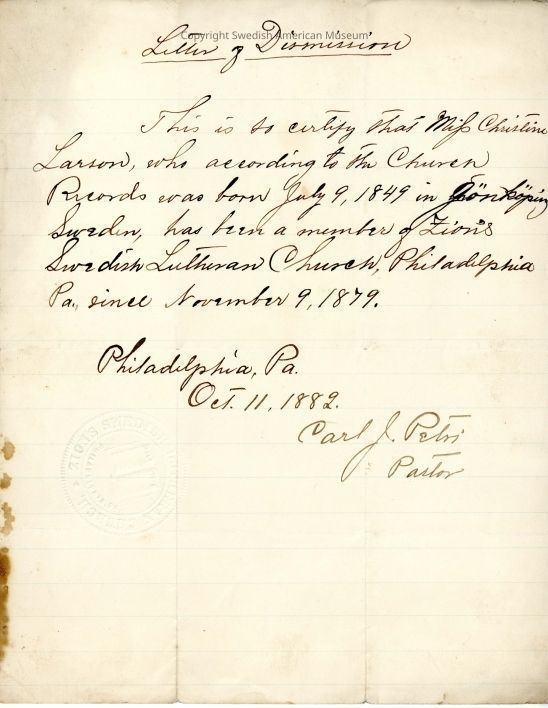 Copyright Swedish American Museum
Letter of Dismission
This is to certify that Miss Christine
Larson, who according to the Church
Records was born July 9, 1849 in Jönköping
Sweden, has been a member of Zion's
Swedish Lutheran Church, Philadelphia
Pa., since November 9, 1879.
Philadelphia, Pa.
Oct. 11, 1882.
Carl J. Petri
Pastor